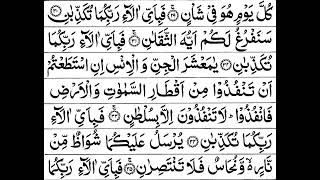 كُلَّ يَوْمٍ هُوَ فِيْ شَاْنٍ ﴿۲۹﴾ فَبِاَيِّ اٰلَآءِ رَبِّكُمَا تُكَذِّبٰنِ ﴿۳۰﴾
سَنَفْرُغُ لَكُمْ اَيُّهَ الثَّقَلٰنِ ﴿۳۱﴾ فَبِاَيِّ اٰلَآءِ رَبِّكُمَا
تُكَذِّبٰنِ ﴿۳۲﴾ يٰمَعْشَرَ الْجِنِّ وَالْاِنْسِ اِنِ اسْتَطَعْتُمْ
اَنْ تَنْفُذُوْا مِنْ اَقْطَارِ السَّمٰوٰتِ وَالْاَرْضِ
فَانْفُذُوْا ؕ لَا تَنْفُذُوْنَ اِلَّا بِسُلْطٰنٍ ﴿۳۳﴾ فَبِاَيِّ اٰلَآءِ
رَبِّكُمَا تُكَذِّبٰنِ ﴿۳۴﴾ يُرْسَلُ عَلَيْكُمَا شُوَاظٌ مِّنْ
نَّارٍ ۙ وَّنُحَاسٌ فَلَا تَنْتَصِرٰنِ ﴿۳۵﴾ فَبِاَيِّ اٰلَآءِ رَبِّكُمَا